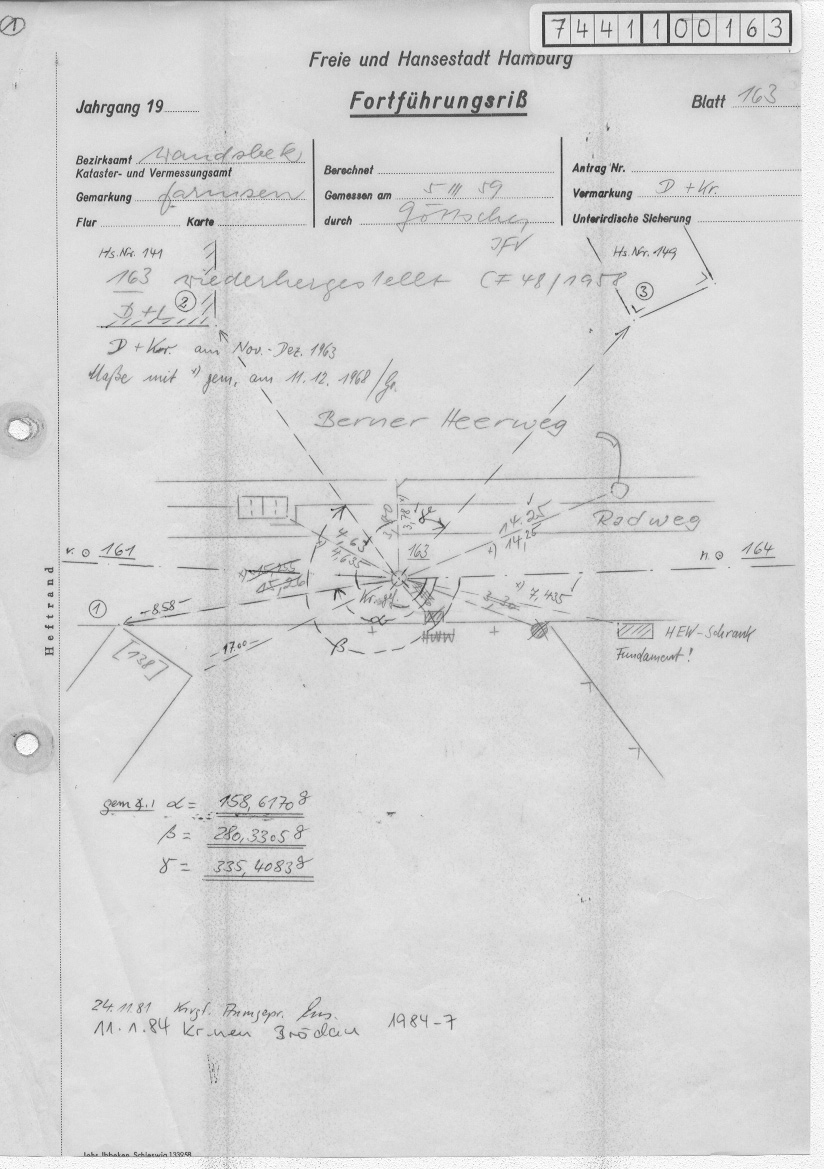 1
7441100163
Freie und Hansestadt Hamburg
Jahrgang 19
Fortführungsriß
Blatt 163
Bezirksamt Wandsbek
Kataster- und Vermessungsamt
Gemarkung Farmsen
Flur Karte
Berechnet
Gemessen am 5 III 59
durch
Antrag Nr.
Vermarkung D + Kr.
Unterirdische Sicherung
Hs. Nr. 141
Hs. Nr. 149
163 wiederhergestellt
48/1958
2
3
D + Kr. am Nov.-Dez. 1963
Maße mit x) gem. am 11.12.1968/
Berner Heerweg
Radweg
14.25
x) 14,25
4,63
4,635
163
v. ⊙ 161
n. ⊙ 164
15,26
x) 7,435
3,30
1
-8.58-
-17.00-
[138]
α
β
γ
HWW
HEW-Schrank
Fundament!
gem. ∡.: α = 158,6170 g
β = 280,3305 g
γ = 335,4083 g
Heftrand
24.11.81
11.1.84 Kr. neu Brödau 1984-7